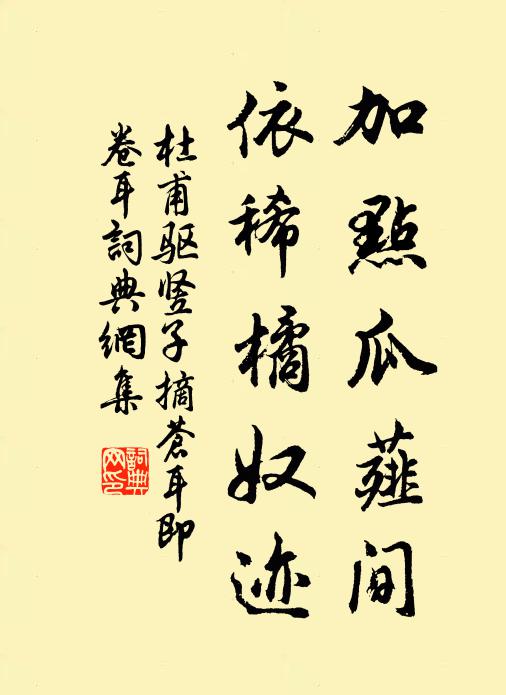 加點瓜薤间
依稀橘奴迹
杜甫驱竖子摘蒼耳即
卷耳詞典網集
詞典网印